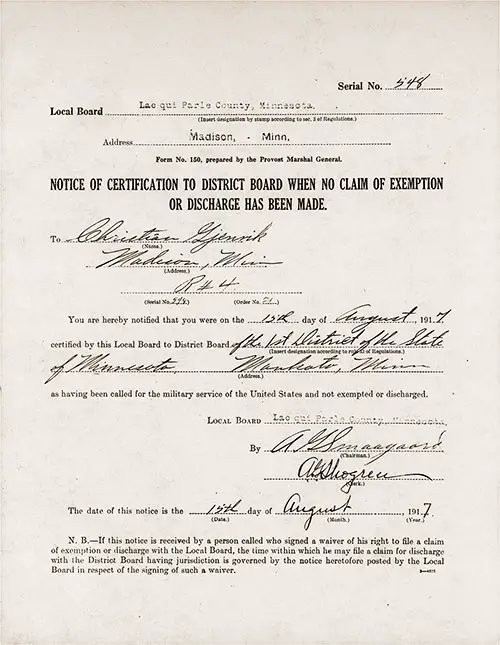 Serial No. 548
Local Board Lac qui Parle County, Minnesota.
(Insert designation by stamp according to sec. 2 of Regulations.)
Address Madison, - Minn,
Form No. 150, prepared by the Provost Marshal General.
NOTICE OF CERTIFICATION TO DISTRICT BOARD WHEN NO CLAIM OF EXEMPTION
OR DISCHARGE HAS BEEN MADE.
To Christian Gjenvik
(Name.)
Madison, Minn
(Address.)
R # 4
(Serial No. 548.) (Order No. 21.)
You are hereby notified that you were on the 15th day of August, 1917,
certified by this Local Board to District Board of the 1st District of the State
(Insert designation according to rule of Regulations.)
of Minnesota, Mankato, Minn
(Address.)
as having been called for the military service of the United States and not exempted or discharged.
LOCAL BOARD Lac qui Parle County, Minnesota.
By
(Chairman.)
(Clerk.)
The date of this notice is the 15th day of August, 1917.
(Date.) (Month.) (Year.)
N. B.—If this notice is received by a person called who signed a waiver of his right to file a claim
of exemption or discharge with the Local Board, the time within which he may file a claim for discharge
with the District Board having jurisdiction is governed by the notice heretofore posted by the Local
Board in respect of the signing of such a waiver.